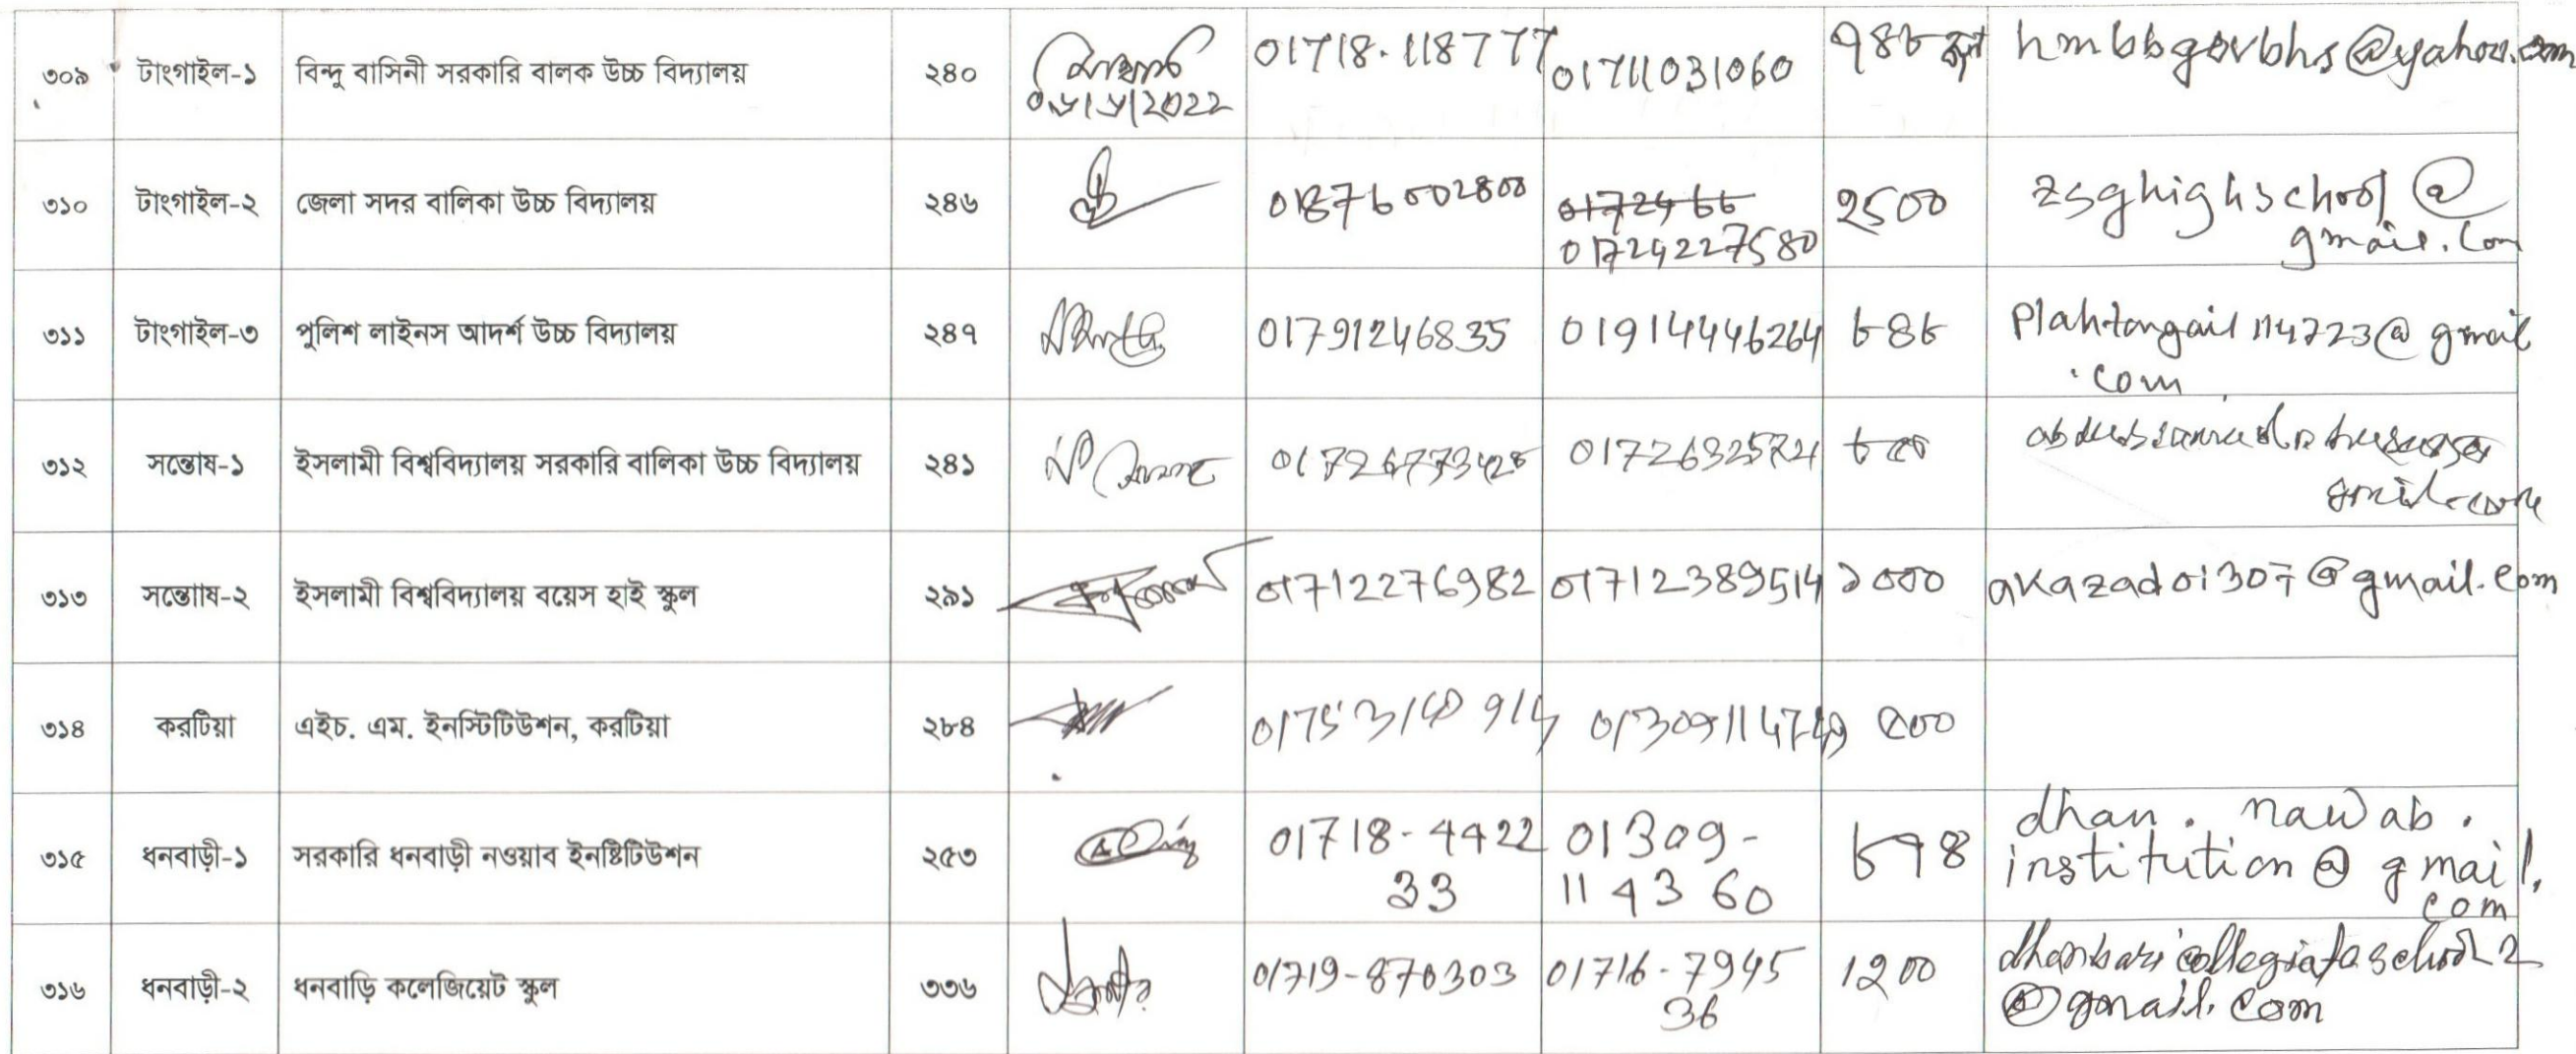 ৩০৯ টাংগাইল-১ বিন্দু বাসিনী সরকারি বালক উচ্চ বিদ্যালয় ২৪০ 01718-118777 01711031060 ৭৪৮ hmbbgovbhs@yahoo.com
2022
৩১০ টাংগাইল-২ জেলা সদর বালিকা উচ্চ বিদ্যালয় ২৪৬ 01876002800 ২500 zsghighschool@
01724227580 gmail.com
৩১১ টাংগাইল-৩ পুলিশ লাইনস আদর্শ উচ্চ বিদ্যালয় ২৪৭ 01791246835 01914446264 ৮৪৮ Plahtangail114723@gmail
.com
৩১২ সন্তোষ-১ ইসলামী বিশ্ববিদ্যালয় সরকারি বালিকা উচ্চ বিদ্যালয় ২৪১ ৮০০
৩১৩ সন্তোাষ-২ ইসলামী বিশ্ববিদ্যালয় বয়েস হাই স্কুল ২৯১ 01712276982 01712389514 ১০০০ akazad01307@gmail.com
৩১৪ করটিয়া এইচ. এম. ইনস্টিটিউশন, করটিয়া ২৮৪ ৫০০
৩১৫ ধনবাড়ী-১ সরকারি ধনবাড়ী নওয়াব ইনষ্টিটিউশন ২৫৩ 01718-4422 01309- ৮৭৪ dhan.nawab.
33 114360 institution@gmail.
com
৩১৬ ধনবাড়ী-২ ধনবাড়ি কলেজিয়েট স্কুল ৩৩৬ 01719-870303 01716-7945 1200 dhanbaricollegiateschool2
36 @gmail.com